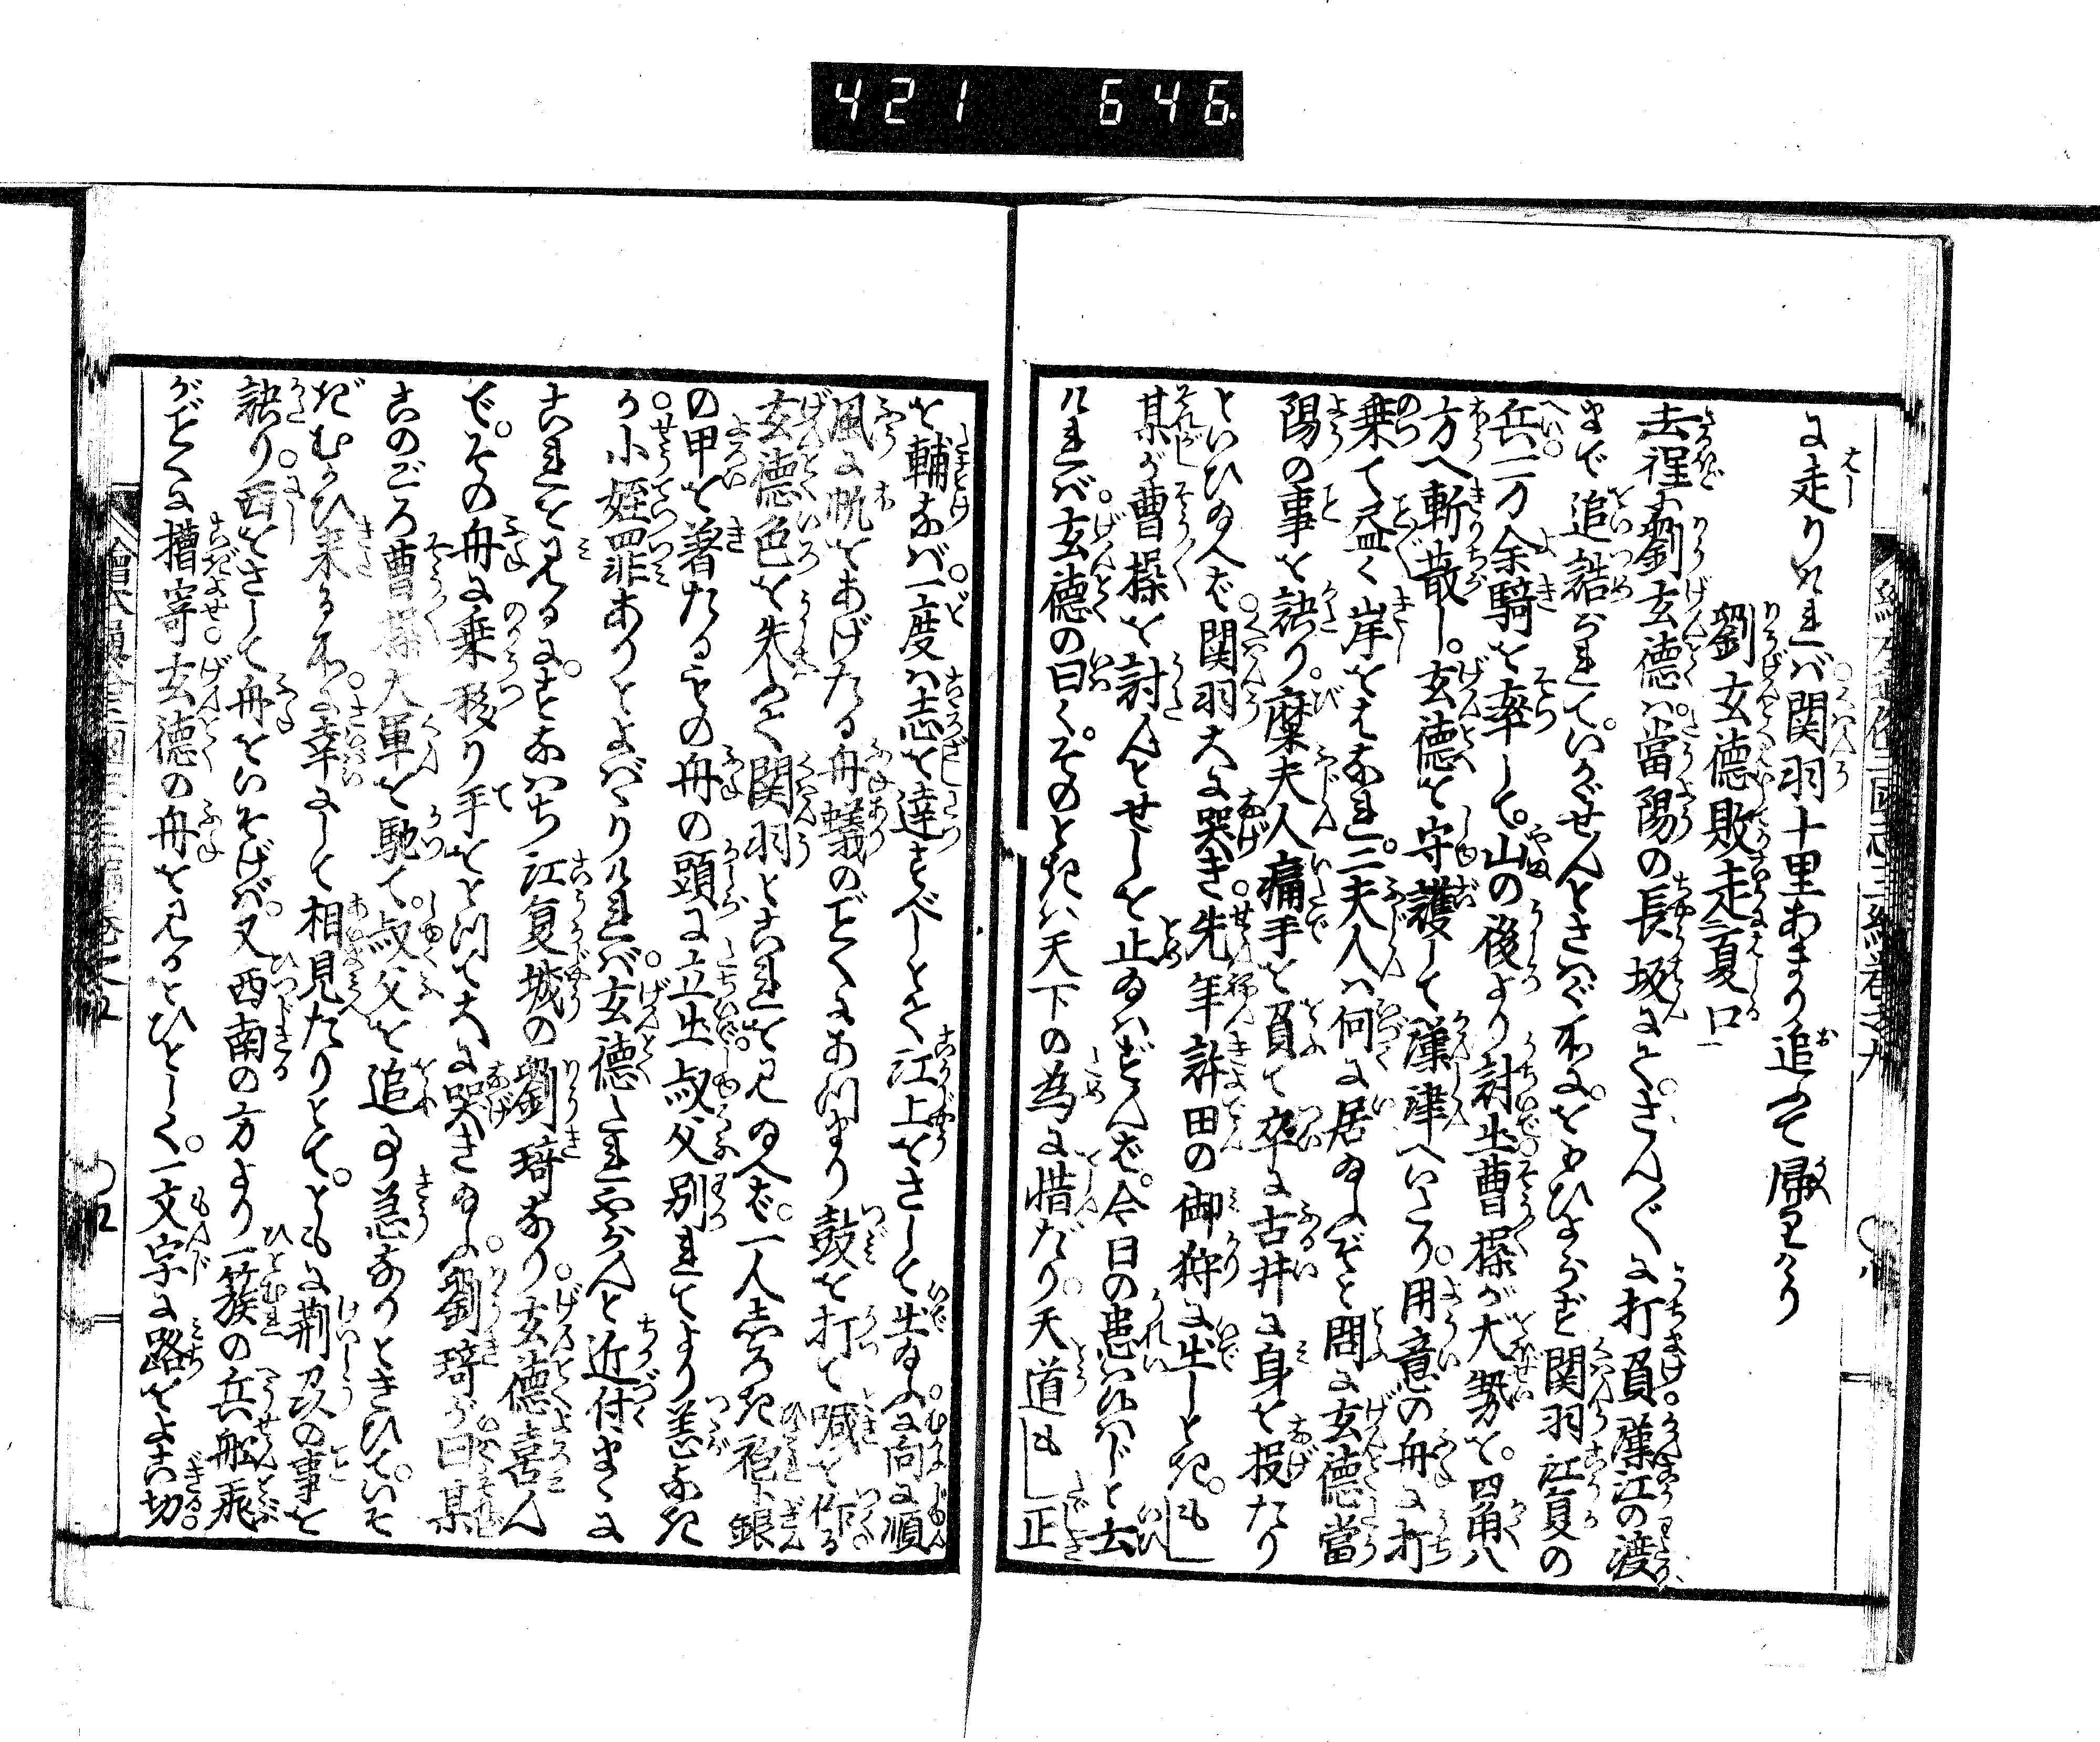 421 646
に走りけれバ関羽十里あまり追ふて帰りけり
劉玄徳敗走夏口
去程に劉玄徳ハ當陽の長坂にてさんざんに打負漢江の渡
まで追詰られていかゞせんとさハぐ所におもひよらず関羽江夏の
兵一万余騎を率して山の後より討出曹操が大勢を四角八
方へ斬散し玄徳を守護して漢津へいたり用意の舟に打
乗て盡く岸をはなれ二夫人ハ何に居ゐふぞと問に玄徳當
陽の事を訣り糜夫人痛手を負て卒に古井に身を投たり
といひ給へバ関羽大に哭き先年許田の御狩に出しとき
某が曹操を討んとせしを止ゐハずんバ今日の患ハ候ハじと去
けれバ玄徳の曰くそのときハ天下の為に惜だり天道もし正
を輔なバ一度ハ志を達すべしとて江上をさして出給ふに向に順
風に帆をあげたる舟蟻のごとくにあつまり鼓を打て喊を作る
玄徳色を失て関羽とこれを見給へバ一人志ろき袍に銀
の甲を着たるもの舟の頭に立出叔父別れてより恙なき
か小姪罪ありとよばゝりけれバ玄徳たれやらんと近付まゝに
これを見るにすなハち江夏城の劉琦なり玄徳喜ん
でその舟に乗移り手をとつて大に哭き給ふ劉琦が曰某
このごろ曹操大軍を馳て叔父を追る事急なりときひていそ
ぎむかひ来る所に幸にして相見たりとてともに荊州の事を
訣り西をさして舟をいそげバ又西南の方より一簇の兵船飛
がごとくに揸寄玄徳の舟を見るとひとしく一文字に路をよこ切